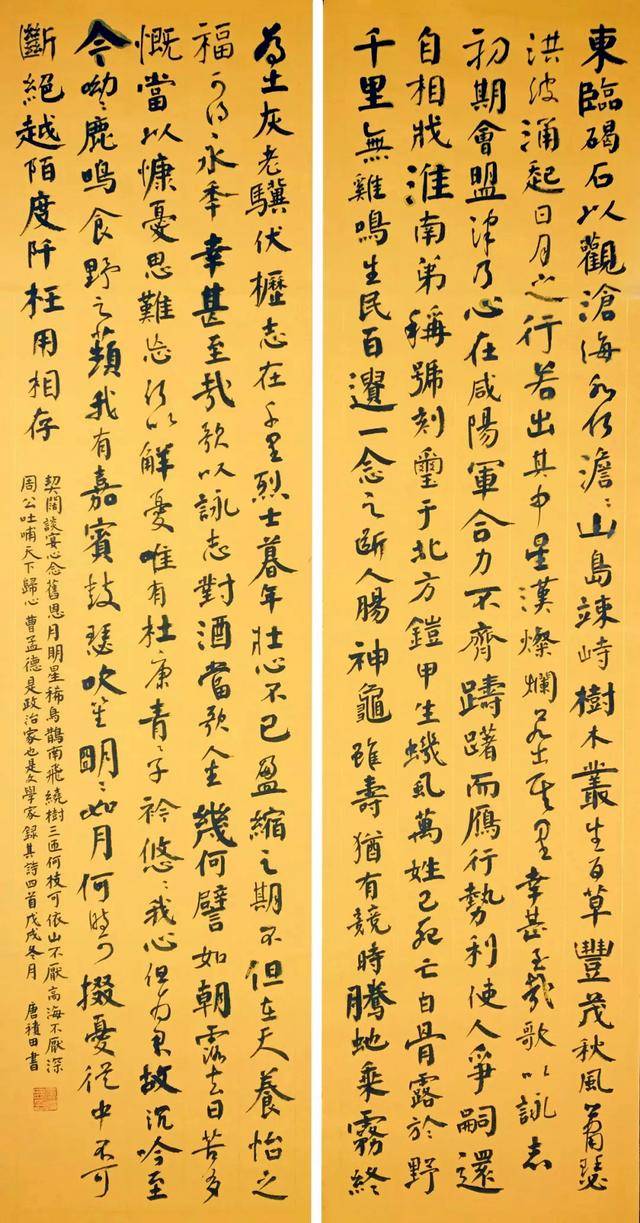 東臨碣石以觀滄海水何澹〻山島竦峙樹木叢生百草豐茂秋風蕭瑟
洪波涌起日月之行若出其中星漢燦爛若出其里幸甚至哉歌以詠志
初期會盟津乃心在咸陽軍合力不齊躊躇而雁行勢利使人爭嗣還
自相戕淮南弟稱號刻璽于北方鎧甲生蟣虱萬姓已死亡白骨露於野
千里無雞鳴生民百遺一念之斷人腸神龜雖壽猶有競時騰虵乘霧終
為土灰老驥伏櫪志在千里烈士暮年壯心不已盈縮之期不但在天養怡之
福可得永年幸甚至哉歌以詠志對酒當歌人生幾何譬如朝露去日苦多
慨當以慷憂思難忘何以解憂唯有杜康青〻子衿悠〻我心但為君故沉吟至
今呦〻鹿鳴食野之蘋我有嘉賓鼓瑟吹笙明〻如月何時可掇憂從中不可
斷絕越陌度阡枉用相存
契闊談宴心念舊恩月明星稀烏鵲南飛繞樹三匝何枝可依山不厭高海不厭深
周公吐哺天下歸心曹孟德是政治家也是文學家錄其詩四首戊戌冬月 唐積田書